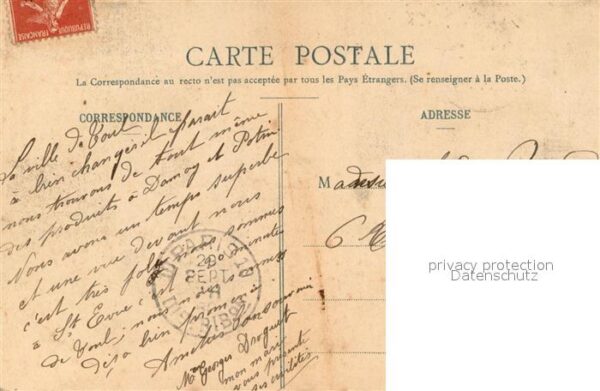 REPUBLIQUE FRANÇAISE
CARTE POSTALE
La Correspondance au recto n'est pas acceptée par tous les Pays Étrangers. (Se renseigner à la Poste.)
CORRESPONDANCE
La ville de Toul
a bien changé il parait
nous trouvons de tout même
des produits à Damoy et Potin
Nous avons un temps superbe
et une vue devant nous
c'est très joli nous sommes
à St Evre c'est à 20 minutes
de Toul; nous nous sommes
déjà bien promené
Amitiés
Mr Georges Droguet
mon mari
vous présente
ses civilités
PARIS
SEPT
ADRESSE
6
privacy protection
Datenschutz